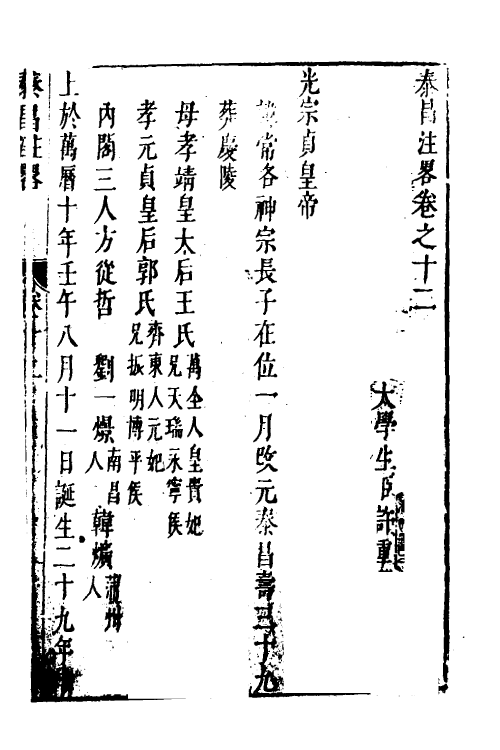 泰昌注畧卷之十二
太學生臣許重
光宗貞皇帝
諱常洛神宗長子在位一月改元泰昌壽三十九
葬慶陵
母孝靖皇太后王氏萬全人皇貴妃兄天瑞永寧侯
孝元貞皇后郭氏齊東人元妃兄振明博平侯
內閣三人方從哲 劉一燝南昌人 韓爌蒲州人
上於萬曆十年壬午八月十一日誕生二十九年
泰昌注畧